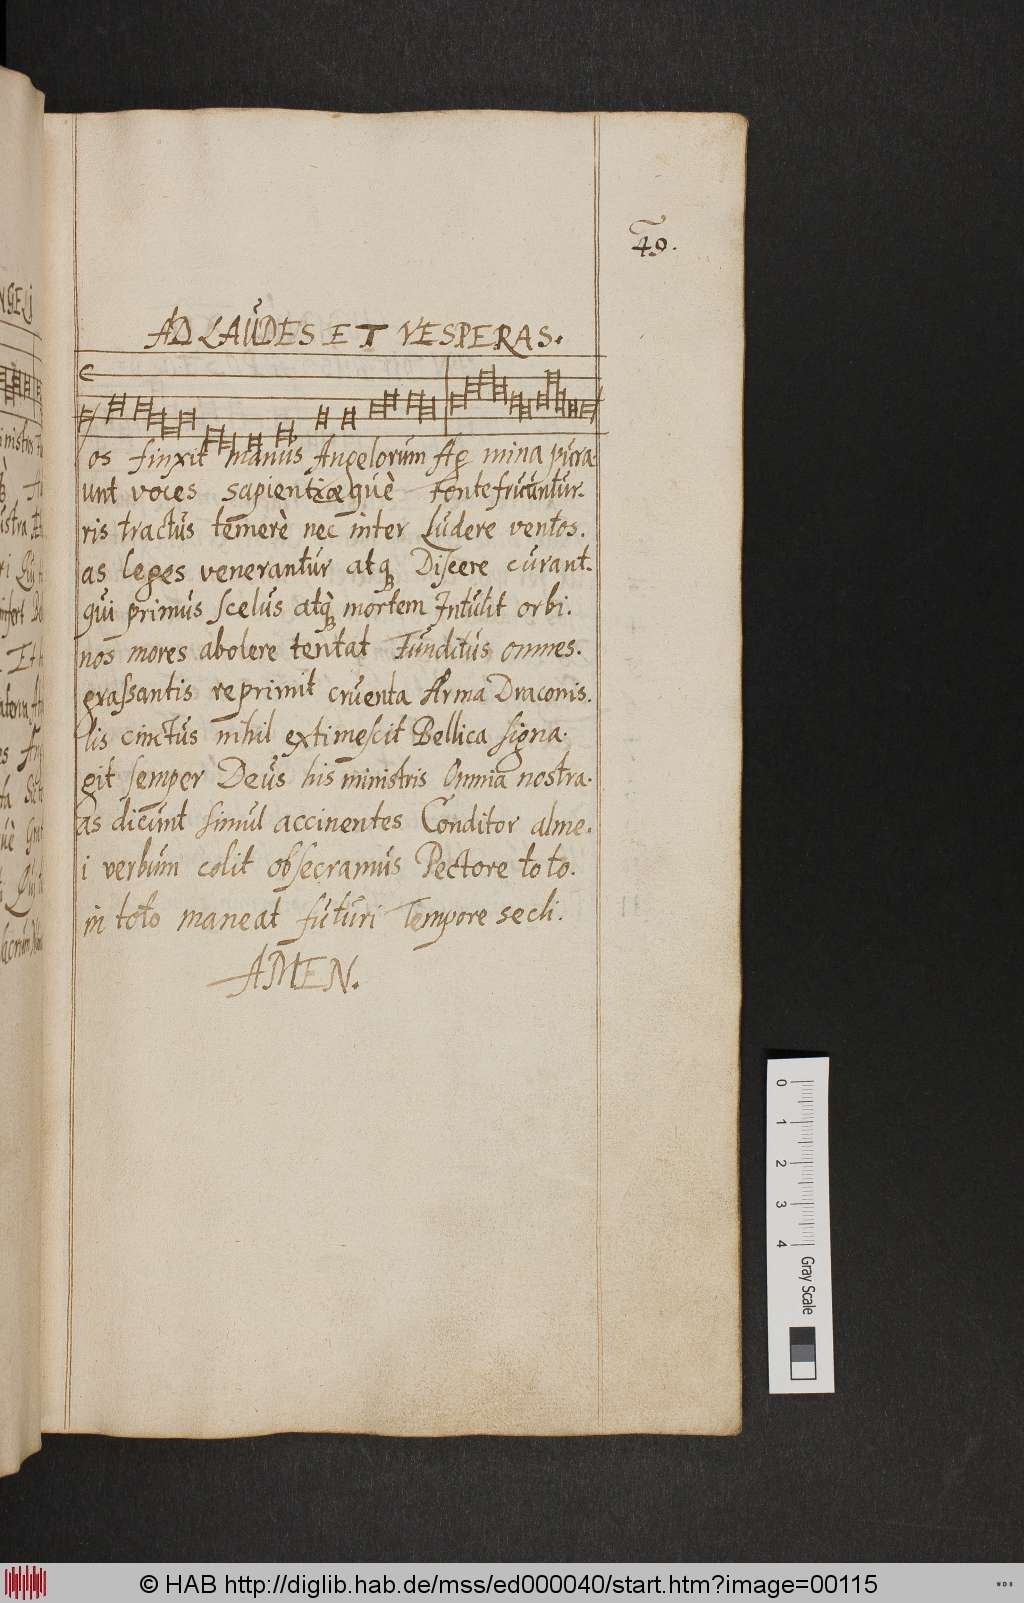 49.
AD LAUDES ET VESPERAS.
os finxit manus Angelorum Ag mina pura
unt voces sapientiæquè Fonte fruuntur.
ris tractus temerè nec inter Ludere ventos.
as leges venerantur atq; Discere curant.
qui primus scelus atq; mortem Intulit orbi.
nos mores abolere tentat Funditus omnes.
grassantis reprimit cruenta Arma Draconis.
lis cinctus nihil extimescit Bellica signa.
git semper Deus his ministris Omnia nostra.
as dicunt simul accinentes Conditor alme.
i verbum colit obsecramus Pectore toto.
in toto maneat futuri Tempore secli.
AMEN.
0 1 2 3 4 Gray Scale
© HAB http://diglib.hab.de/mss/ed000040/start.htm?image=00115